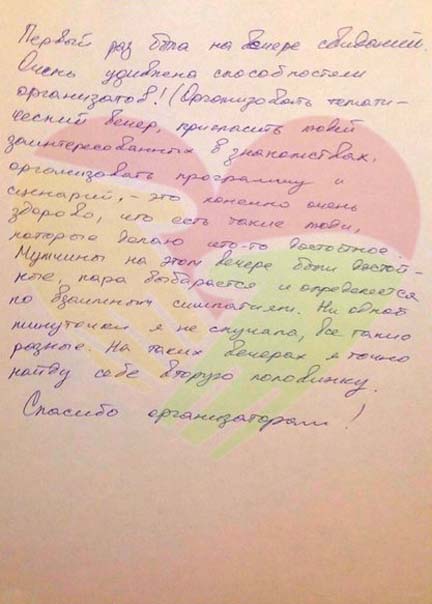 Первый раз была на вечере свиданий.
Очень удивлена способностями
организатов! (Организовать темати-
ческий вечер, пригласить людей
заинтересованных в знакомствах,
организовать программу и
сценарий, - это конечно очень
здорово, что есть такие люди,
которые делаю что-то достойное.
Мужчины на этом вечере были достой-
ные, пара выбирается и определяется
по взаимным симпатиям. Ни одной
минуточки я не скучала, все такие
разные. На таких вечерах я точно
найду себе вторую половинку.
Спасибо организаторам!